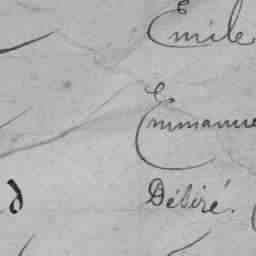 Emile
Emmanue
d Désiré.